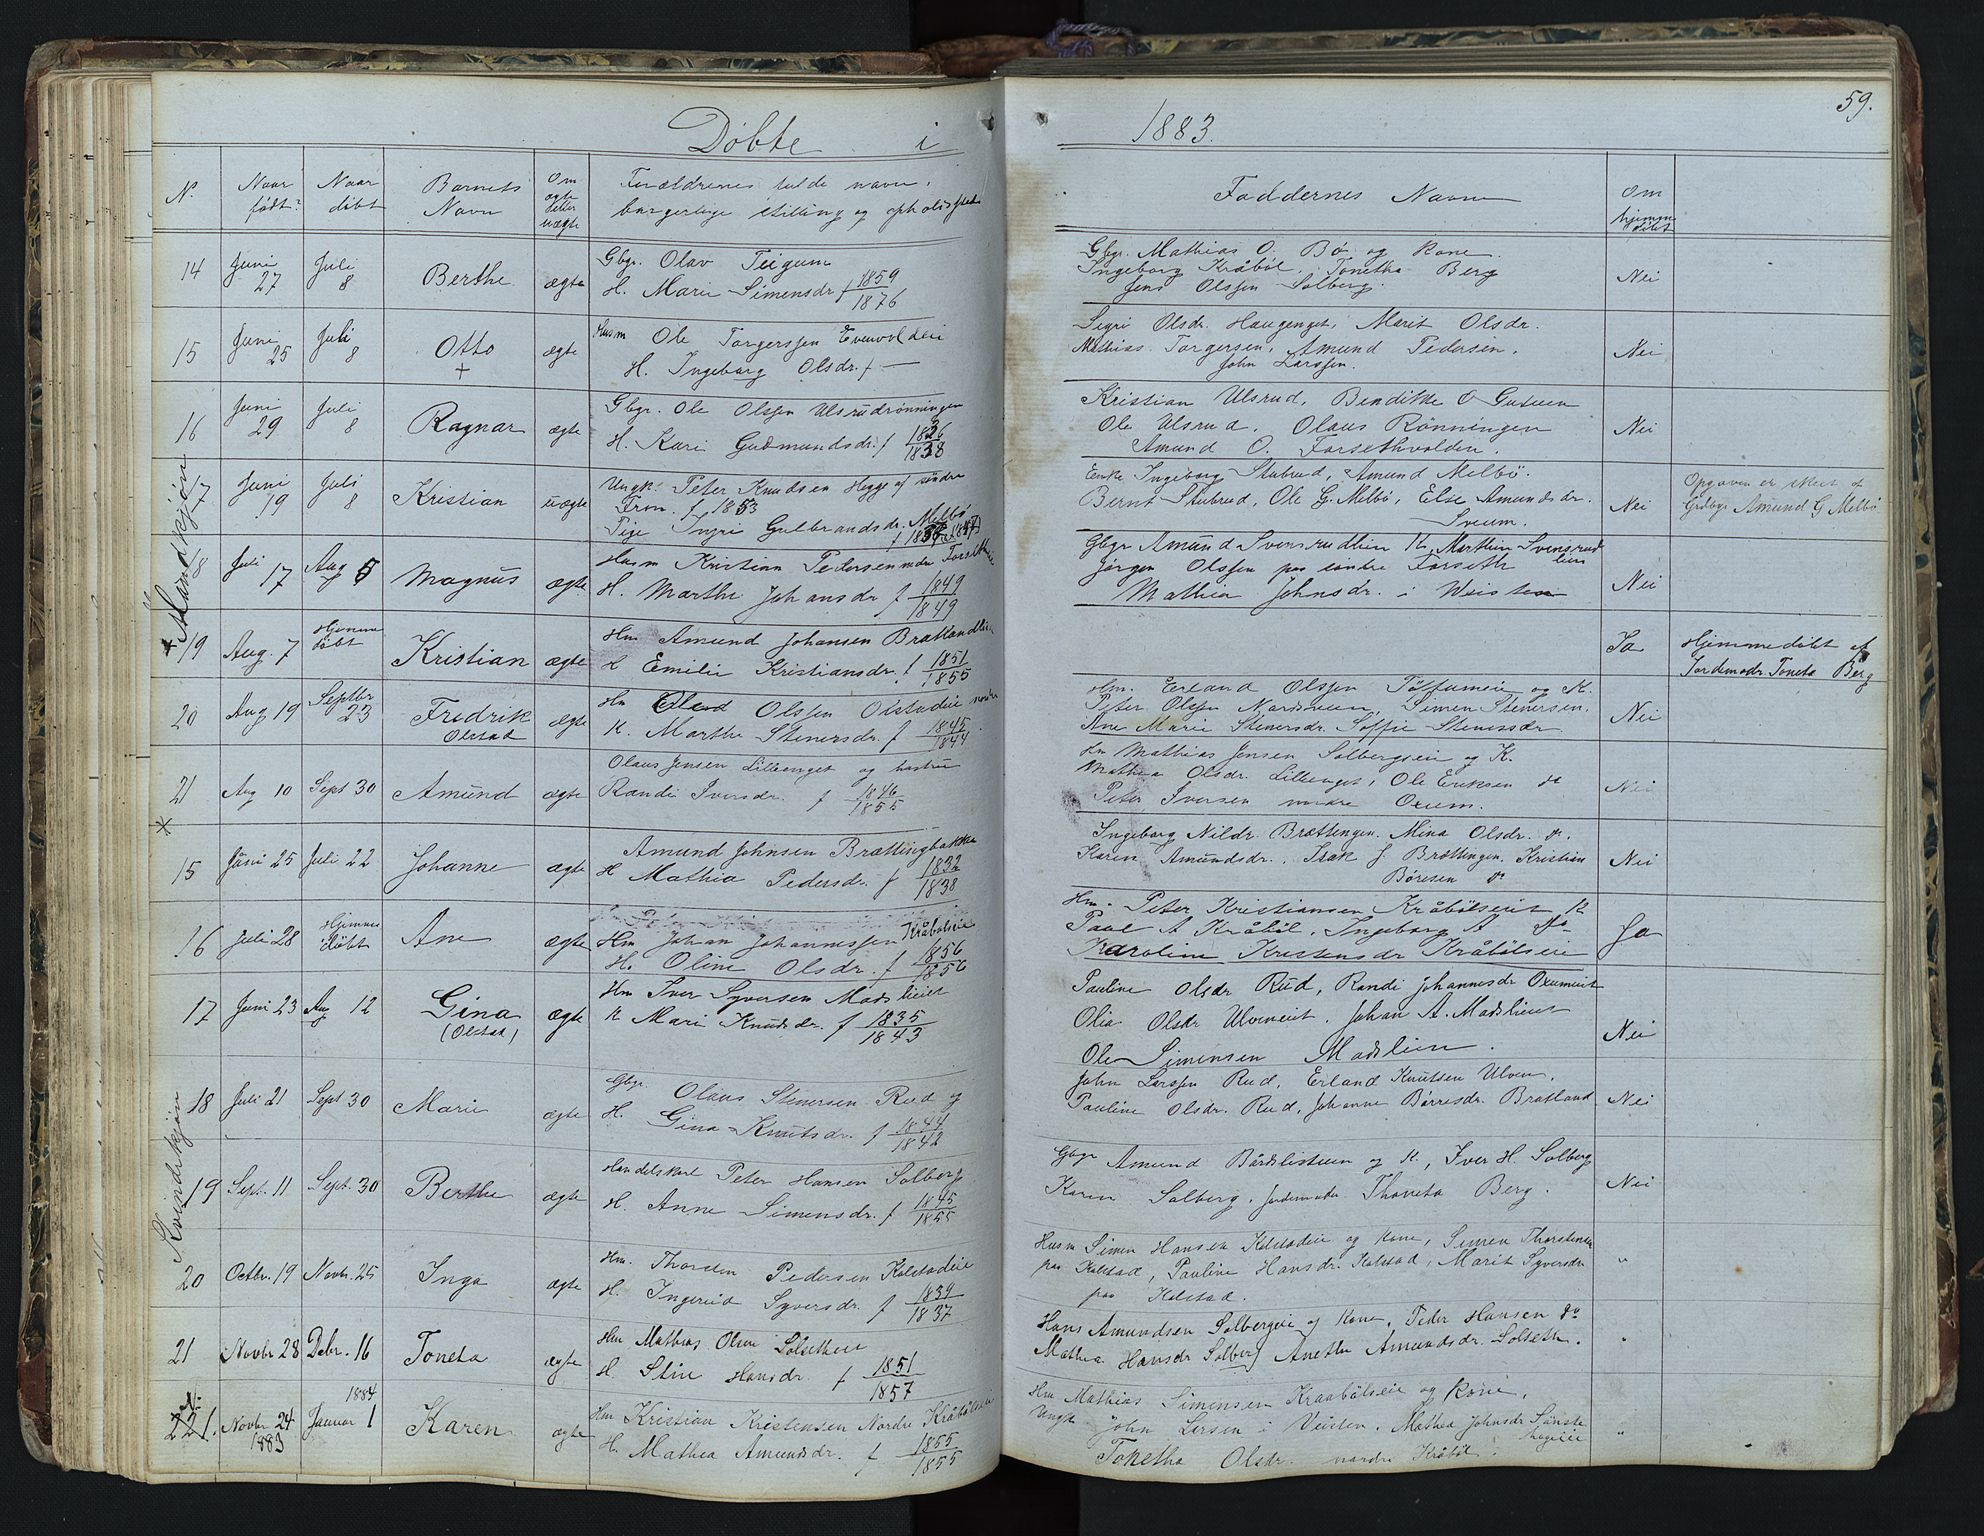 Døbte i
1883.
59.
N. Naar født? Naar døbt Barnets Navn Om ægte eller uægte Forældrenes fulde navn, borgerlige stilling og opholdssted
Faddernes Navn Om hjemmedøbt
14 Juni 27 Juli 8 Berthe ægte Gbgr. Olav Teigum
H. Marie Simensdr. f 1859 1876
Gbgr. Mathias O. Bø og Kone
Ingeborg Kråbøl, Tonetha Berg
Jens Olssen Solberg.
Nei
15 Juni 25 Juli 8 Otto + ægte Husm Ole Torgerssen
H. Ingeborg Olsdr. f —
Sigri Olsdr. Haugenget, Marit Olsdr.
Mathias Torgersen, Amund Pedersen,
John Larssen.
Nei
16 Juni 29 Juli 8 Ragnar ægte Gbgr. Ole Olssen Ulsrudrønningen
H. Kari Gudmundsdr. f 1826 1838
Kristian Ulsrud, Bendikte O
Ole Ulsrud, Olaus Rønningen
Amund O. Forsethvolden.
Nei
Mandkjøn
17 Juni 19 Juli 8 Kristian uægte Ungk. Peter Knudsen Hegge af søndre
Fron. f 1853
Pige Ingri Gulbrandsdr. Melbø
Enke Ingeborg Stubrud, Amund Melbø.
Bernt Stubrud, Ole G. Melbø, Else Amundsdr.
Sveum.
Nei
Opgaven er sket af
Grdbgr Amund G Melbø
18 Juli 17 Aug 5 Magnus ægte Husm Kristian Pedersen nedre Forsetheie
H. Marthe Johansdr f 1849 1849
Gbgr Amund Svensrudlien K. Marthea Svensrudlien
Jørgen Olssen paa søndre Forseth
Mathea Johnsdr. i Veisten
Nei
19 Aug. 7 Hjemmedøbt Kristian ægte Hm Amund Johansen Bratlandlien
H Emilie Kristiansdr. f 1851 1855
Ja
Hjemmedøbt af
Jordemodr. Toneta Berg
20 Aug 19 Septbr 23 Fredrik Olstad ægte Hm Olssen Olstadeie nordre
K. Marthe Stenersdr. f 1845 1844
Hm. Erland Olssen og K.
Peter Olsen Nordsveen, Simen Stenersen,
Ane Marie Stenersdr. Soffie Stenersdr
Nei
21 Aug 10 Sept 30 Amund ægte Olaus Jensen Lilleenget og hustru
Randi Iversdr. f 1846 1855
Hm Mathias Jensen Solbergseie og K.
Mathea Olsdr. Lillenget, Ole Eriksen do
Peter Iversen nordre Oxum.
Nei
15 Juni 25 Juli 22 Johanne ægte Amund Johnsen Brættingbakke
H Mathia Pedersdr. f 1832 1838
Ingeborg Nilsdr. Brættingen. Mina Olsdr. do.
Karen Amundsdr. Isak J. Brættingen, Kristian
Børesen do
Nei
16 Juli 28 Hjemmedøbt Ane ægte Hm Johan Johannessen Kråbølseie
H. Oline Olsdr. f 1856 1856
Hm. Peter Kristiansen Kråbølseiet K
Paul A Kråbøl, Ingeborg A do
Karoline Kristensdr Kråbølseie
Ja
17 Juni 23 Aug 12 Gina (Olstad) ægte Hm Iver Syversen Madslieiet
K Mari Knudsdr. f 1835 1843
Pauline Olsdr Rud, Randi Johannesdr Oxumeiet
Olia Olsdr Ulveneiet. Johan A. Madslien
Ole Simensen Madslien.
Nei
Kvindekjøn
18 Juli 21 Sept 30 Marie ægte Gbgr. Olaus Stenersen Rud og
H. Gina Knutsdr. f 1844 1842
John Larssen Rud, Erland Knutsen Ulven.
Pauline Olsdr. Rud, Johanne Børresdr. Bratland
Nei
19 Sept. 11 Sept. 30 Berthe ægte Handelskarl Peter Hansen Solberg
H. Anne Simensdr. f 1845 1855
Gbgr Amund Bårdslistuen og K., Iver H. Solberg
Karen Solberg, Jordemoder Thoneta Berg.
Nei
20 Octbr. 19 Novbr. 25 Inga ægte Hm. Thorsten Pedersen Kolstadeie
H. Ingerid Syversdr. f 1839 1837
Husm Simen Hansen Kolstadeie og Kone, Simen Thorstensen
paa Kolstad, Pauline Hansdr. Kolstad, Marit Syversdr
paa Kolstad.
"
21 Novbr 28 Debr. 16 Toneta ægte Hm Mathias Olsen Solsetheie
H. Stine Hansdr. f 1851 1857
Hans Amundsen Solbergeie og Kone, Peder Hansen do
Mathea Hansdr Solberg Anette Amundsdr. Solseth.
"
221. Novbr 24 1883 1884 Januar 1 Karen ægte Hm Kristian Kristensen Nordre Kråbølseie
H. Mathea Amundsdr. f 1855 1855
Hm Mathias Simensen Kraabølseie og Kone,
Ungk John Larsen i Veisten, Mathea Johnsdr
Toketha Olsdr. nordre Kråbøl.
"